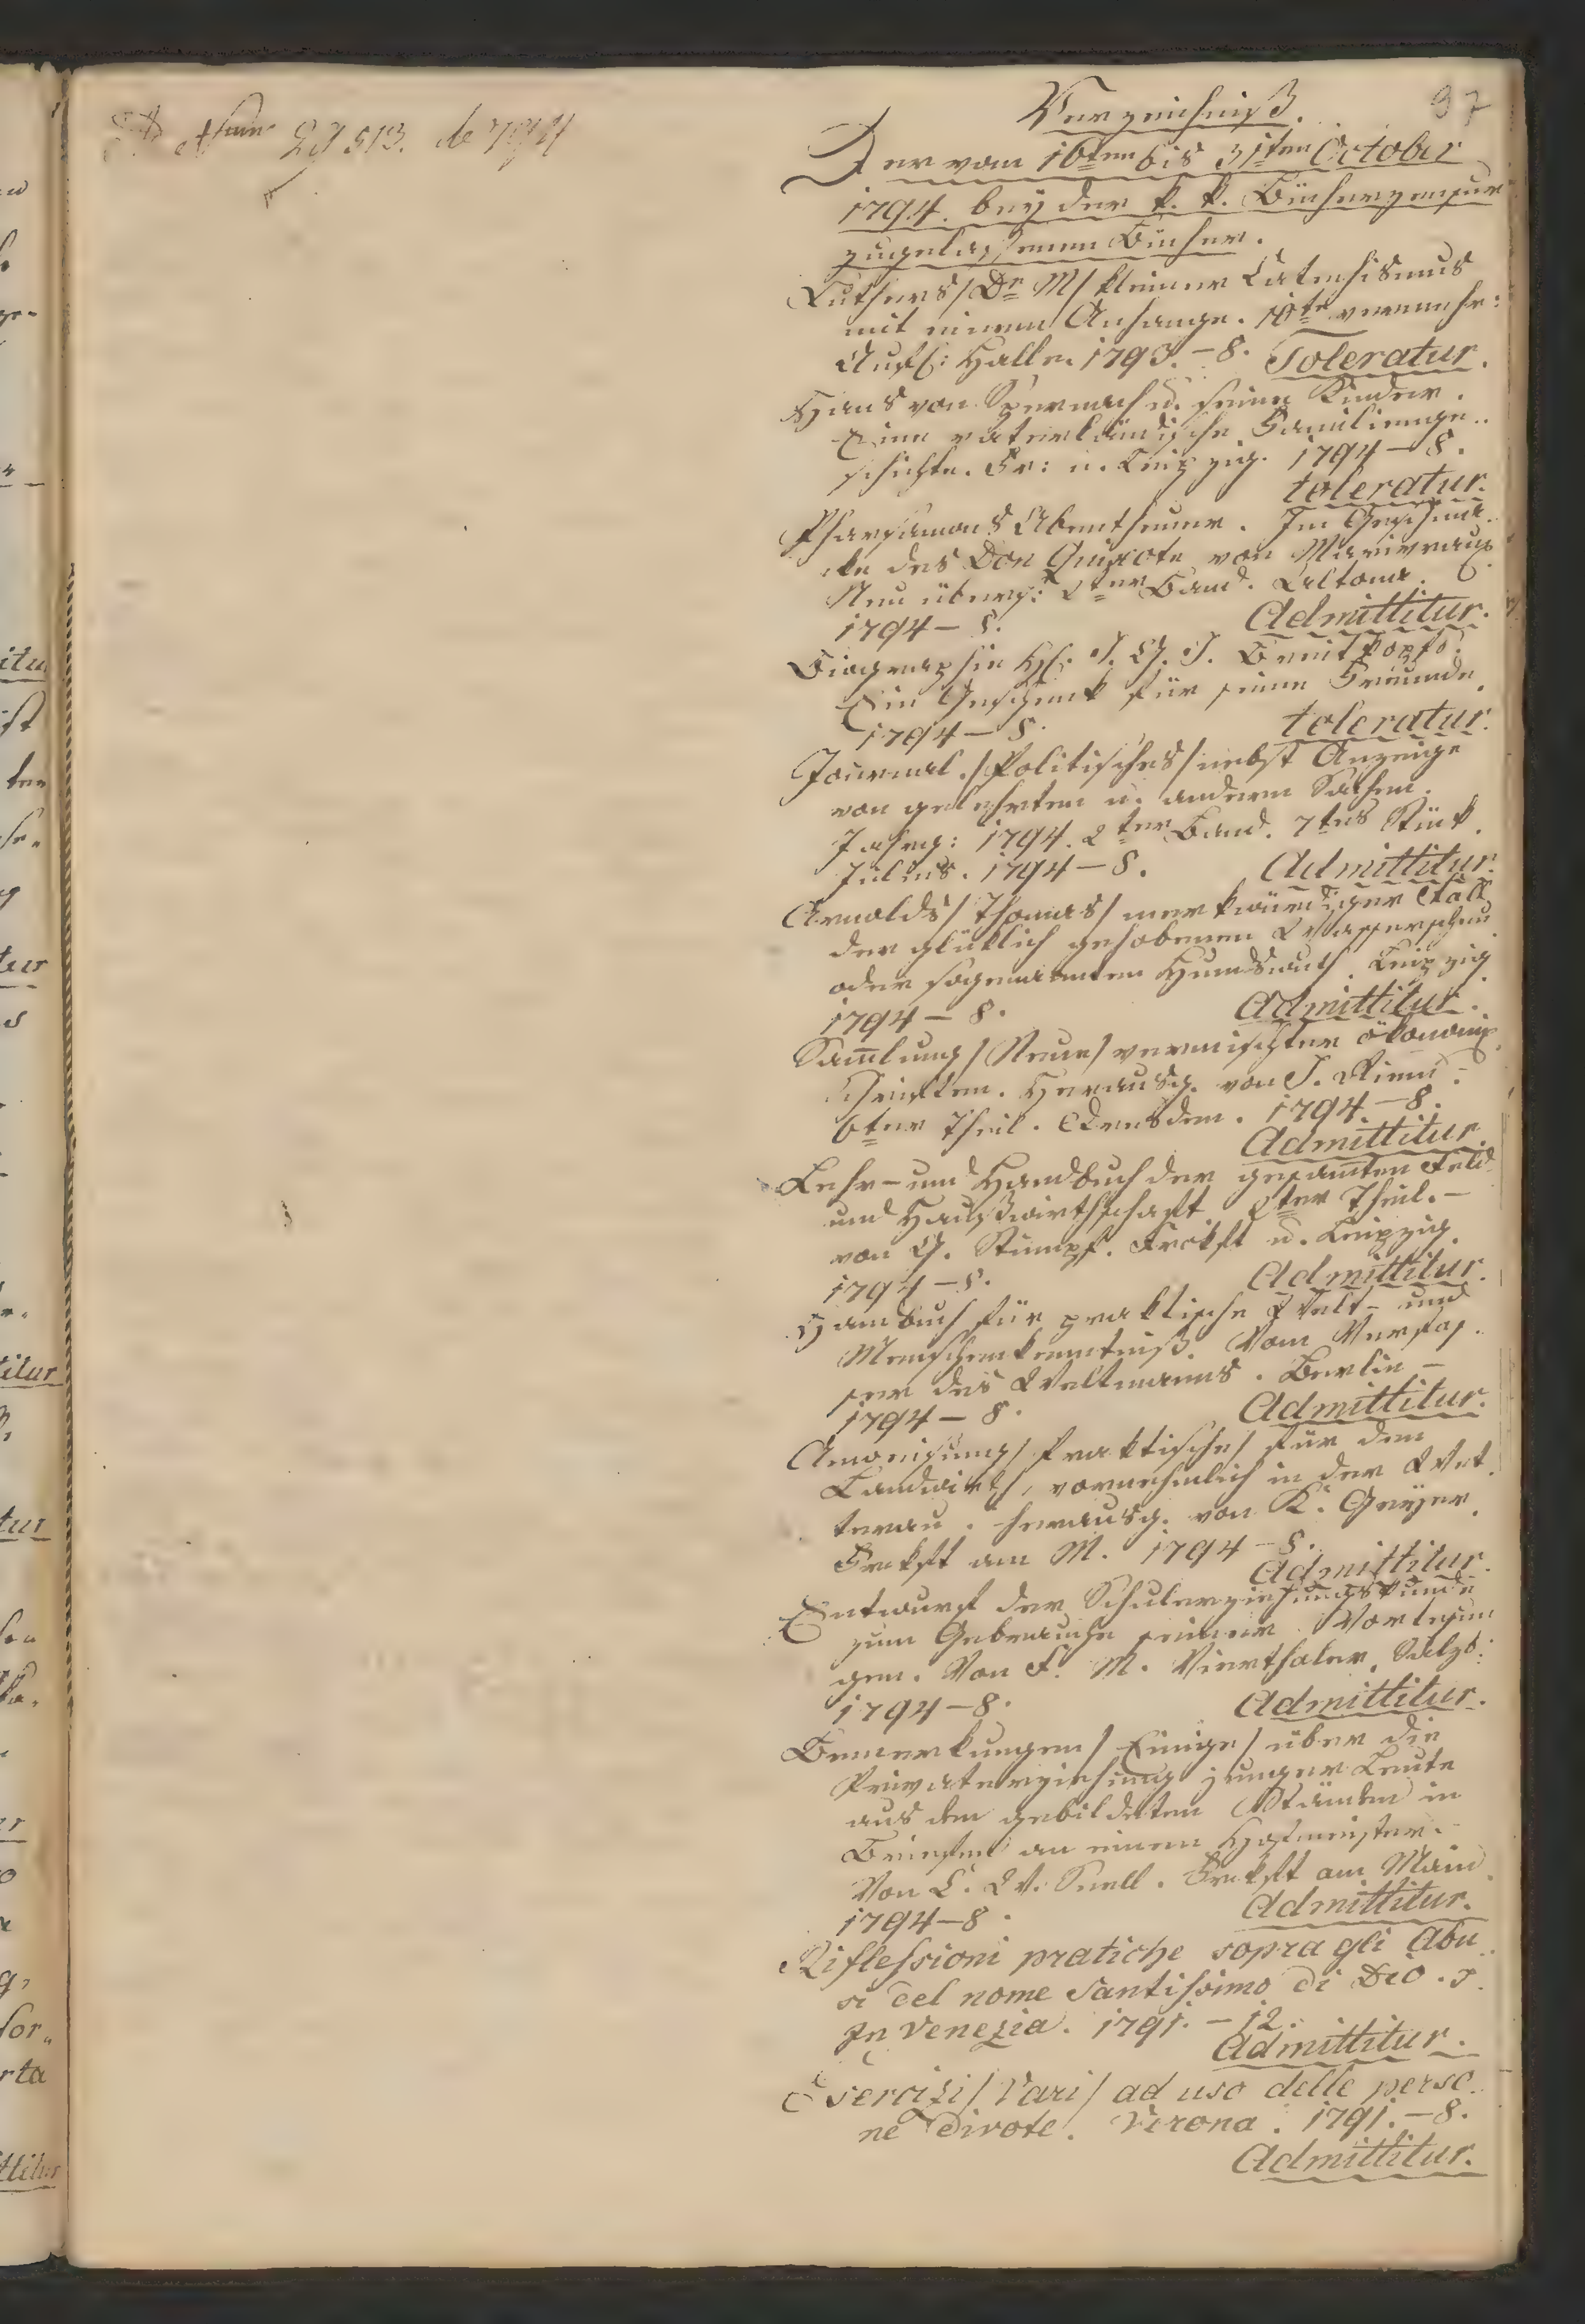 Ad Num 29513. de 794
97
Verzeichniß.
Der vom 16ten bis 31ten October
1794. bey der k. k. Bücherzensur
zugelassenen Bücher.
Luthers/Dr M/ kleiner Catechismus
mit einem Anhange. 10te vermehr:
Aufl: Halle. 1793. – 8. Toleratur.
Hans von Spermach u. seine Kinder.
Eine vaterländische Familienge..
schichte. Fr: u. Leipzig. 1794 – 8.
toleratur.
Pharsamons Abentheuer. Im Geschma..
cke des Don Quixote von Marivaux
Neu übers: 2ter Band. Altona.
1794 – 8. Admittitur.
Biographie H: J. G. J. Breitkopfs.
Ein Geschenk für seine Freunde.
1794 – 8. toleratur.
Journal./Politisches/nebst Anzeige
von gelehrten u. andern Sachen.
Jahrg: 1794. 2ter Band. 7tes Stük.
Julius. 1794 – 8. Admittitur.
Arnolds/Thomas/ merkwürdiger Fall
der glüklich gehobenen Wasserscheu
oder sogenannten Hundswuth. Leipzig
1794 – 8. Admittitur.
Sam̅lung/Neue/vermischter ökonomis.
Schriften. Herausg. von J. Riem.
6ter Theil. Dresden. 1794. – 8.
Admittitur.
Lehr- und Handbuch der gesam̅ten Feld
und Haußwirthschaft 2ter Theil. –
von G. Stumpf. Frckft u. Leipzig.
1794 – 8. Admittitur.
Handbuch für praktische Welt- und
Menschenkenntniß. Vom Verfas..
ser des Weltmanns. Berlin –
1794 – 8. Admittitur.
Anweisung/Praktische/ für den
Landwirth, vornehmlich in der Wet.
terau. herausg. von K. Geyer.
Frckft am M. 1794 – 8.
Admittitur.
Entwurf der Schulerziehungskunde
zum Gebrauche seiner Vorlesun
gen. Von F. M. Vierthaler. Salzb:
1794 – 8. Admittitur.
Bemerkungen/Einige/über die
Privaterziehung junger Leute
aus den gebildeten Ständen in
Briefen an einen Hofmeister.
Von C. W. Snell. Frckft am Main
1794 – 8. Admittitur.
Riflessioni pratiche sopra gli Abu..
si del nome Santissimo di Dio. T.
In Venezia. 1791. – 12.
Admittitur.
Esercizi/Vari/ ad uso delle perso..
ne divote. Verona. 1791. – 8.
Admittitur.